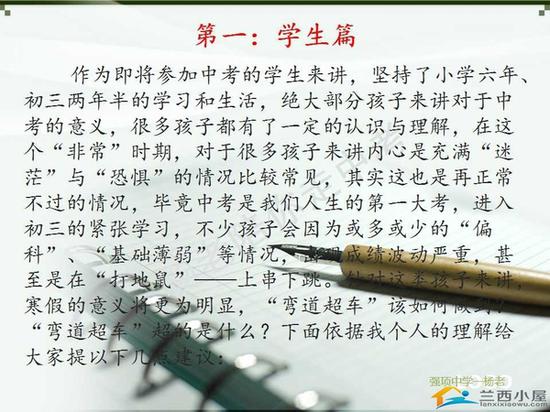 第一：学生篇
作为即将参加中考的学生来讲，坚持了小学六年、
初三两年半的学习和生活，绝大部分孩子来讲对于中
考的意义，很多孩子都有了一定的认识与理解，在这
个“非常”时期，对于很多孩子来讲内心是充满“迷
茫”与“恐惧”的情况比较常见，其实这也是再正常
不过的情况，毕竟中考是我们人生的第一大考，进入
初三的紧张学习，不少孩子会因为或多或少的“偏
科”、“基础薄弱”等情况，出现成绩波动严重，甚
至是在“打地鼠”——上串下跳。针对这类孩子来讲，
寒假的意义将更为明显，“弯道超车”该如何做到？
“弯道超车”超的是什么？下面依据我个人的理解给
大家提以下几点建议：
强项中学—杨老
兰西小屋
lanxixiaowu.com